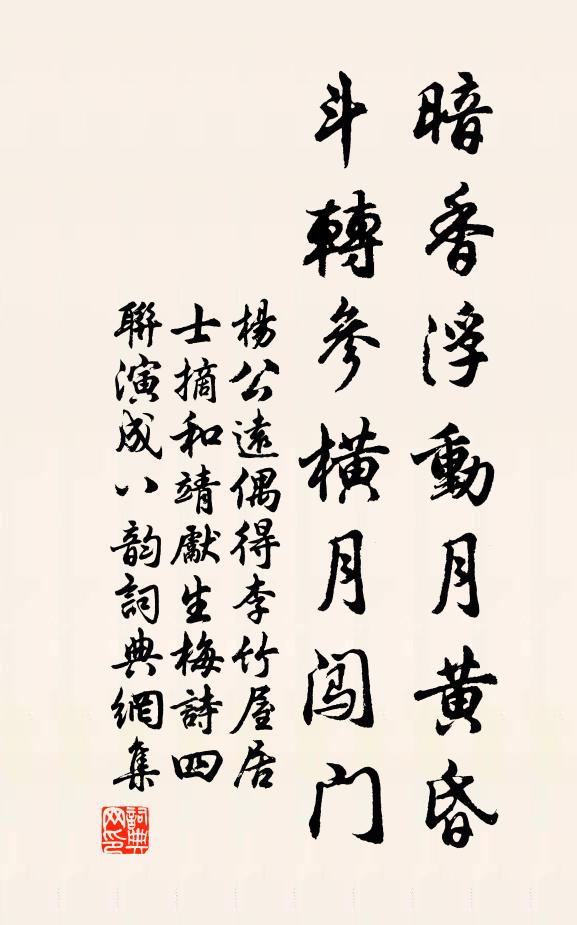 暗香浮動月黃昏
斗轉參橫月闯门
楊公遠偶得李竹屋居
士摘和靖獻生梅詩四
聯演成八韵詞典網集
詞典